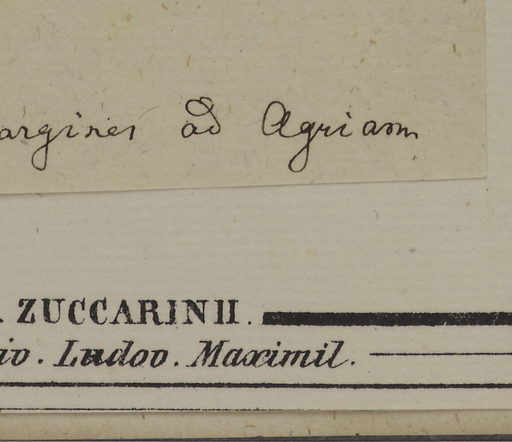 argines ad Agriam
. ZUCCARINII.
io. Ludov. Maximil.